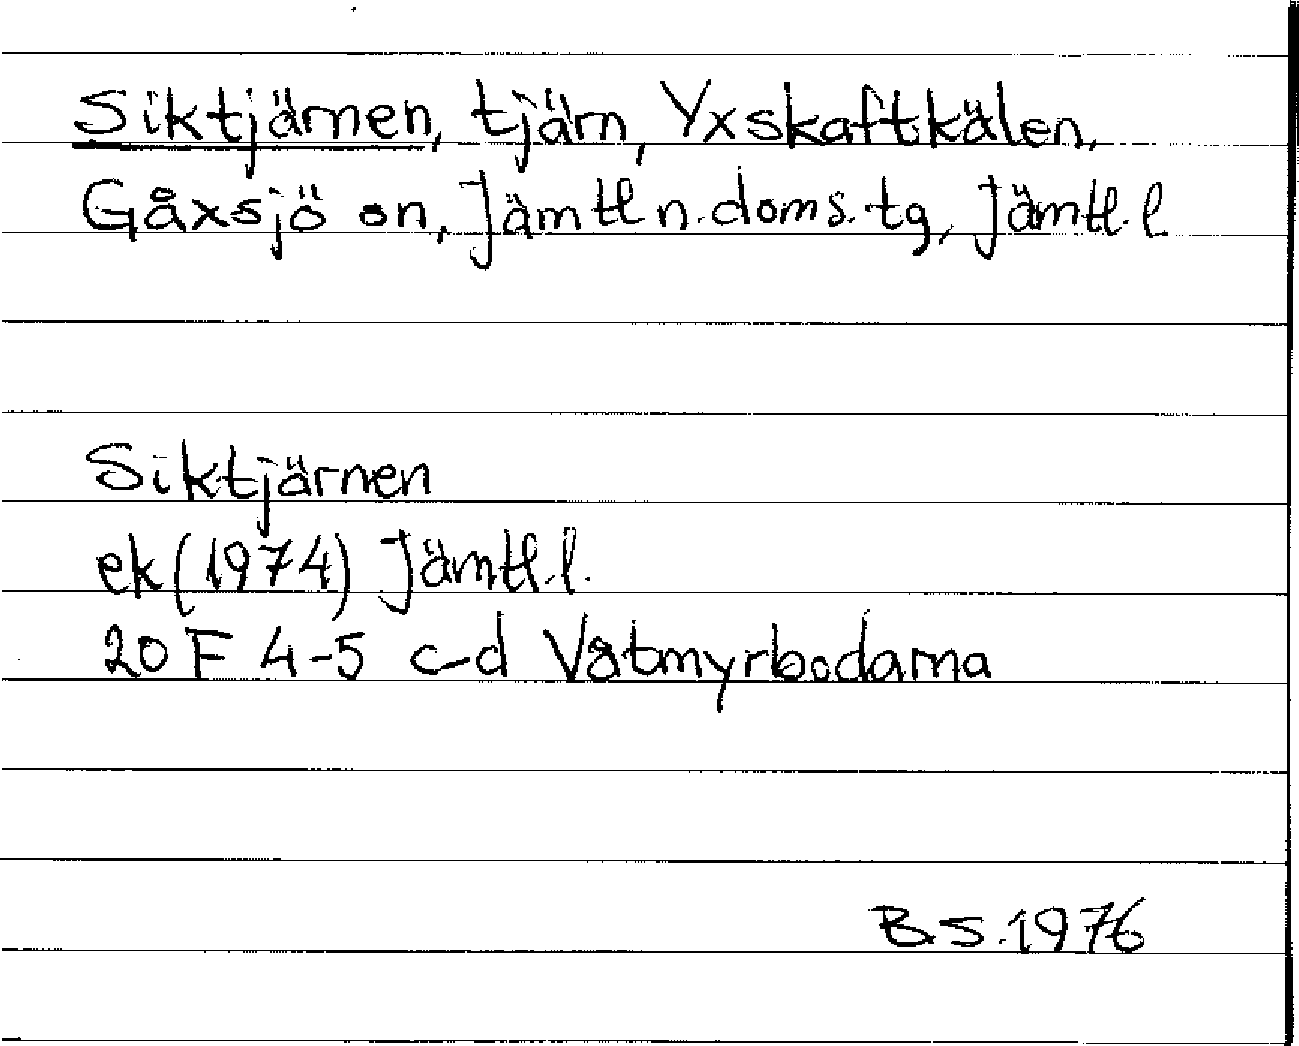 Siktjärnen, tjärn, Yxskaftkälen,
Gåxsjö sn, Jämtl n. doms. tg, Jämtl. l.
Siktjärnen
ek (1974) Jämtl. l.
20 F 4-5 c-d Våtmyrbodarna
B.S. 1976